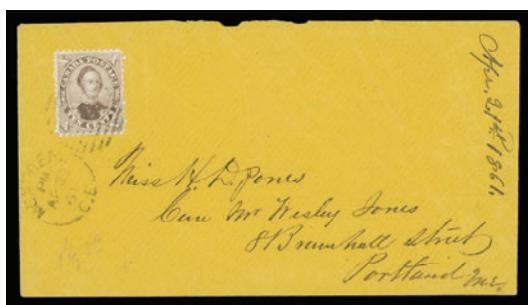 CANADA POSTAGE
TEN CENTS
MONTREAL
C.E
Apr. 21st 1861.
Miss H. D. Jones
Care Mr Wesley Jones
8 Bramhall street
Portland Me.